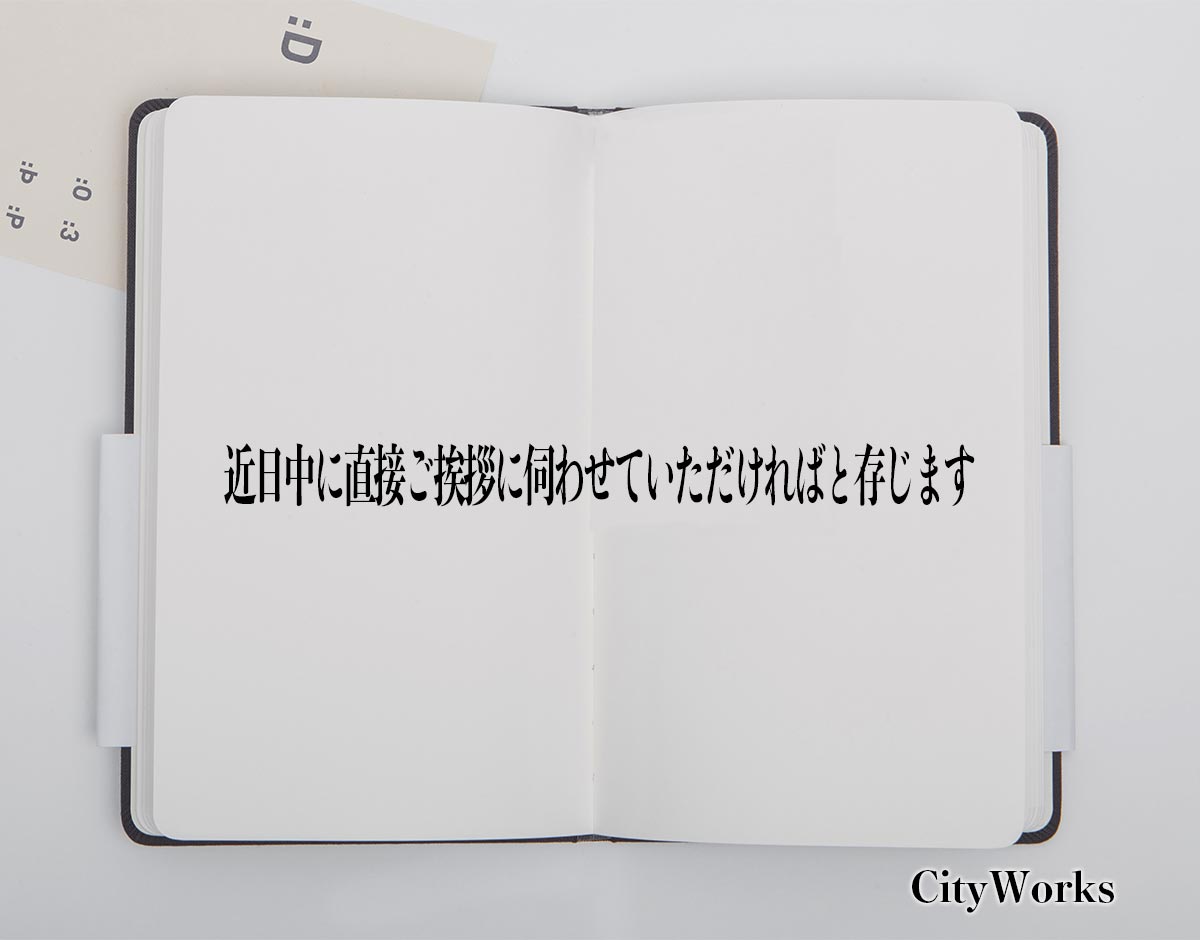 :D
:P
:O
:P
:3
近日中に直接ご挨拶に伺わせていただければと存じます
CityWorks